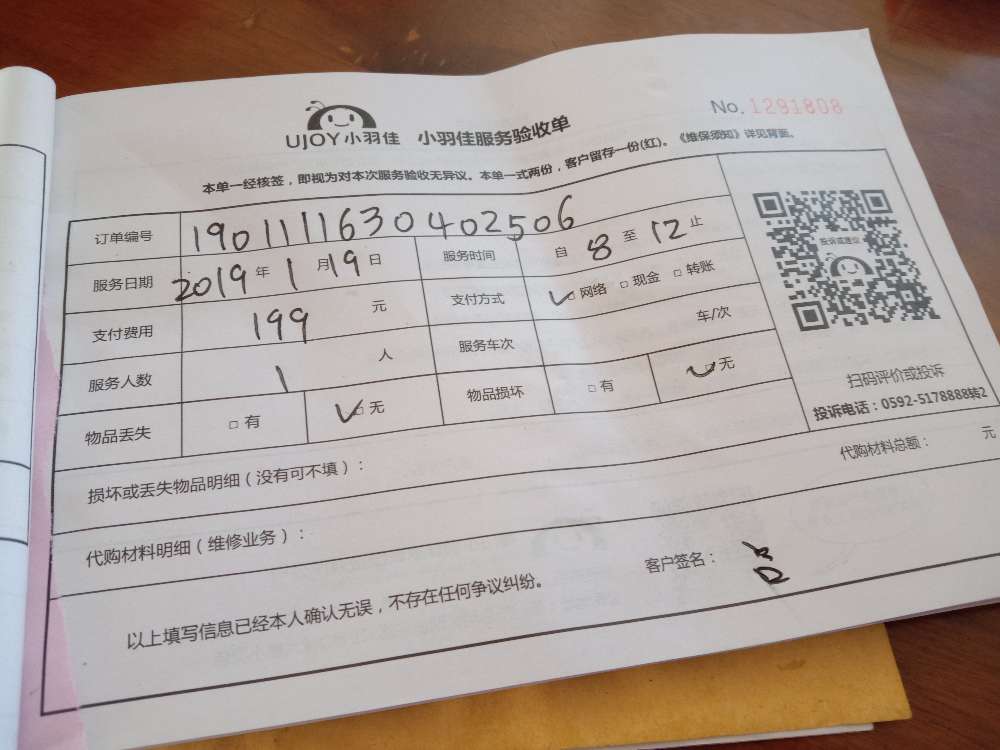 No. 1291808
UJOY小羽佳 小羽佳服务验收单
本单一经核签，即视为对本次服务验收无异议。本单一式两份，客户留存一份(红)。《维保须知》详见背面。
订单编号 190111630402506
服务日期 2019 年 1 月 19 日 服务时间 自 8 至 12 止
支付费用 199 元 支付方式 ✓□ 网络 □ 现金 □ 转账
服务人数 1 人 服务车次 车/次
物品丢失 □ 有 ✓□ 无 物品损坏 □ 有 ✓□ 无
投诉或建议
扫码评价或投诉
投诉电话：0592-5178888转2
损坏或丢失物品明细（没有可不填）：
代购材料明细（维修业务）： 代购材料总额： 元
以上填写信息已经本人确认无误，不存在任何争议纠纷。 客户签名：